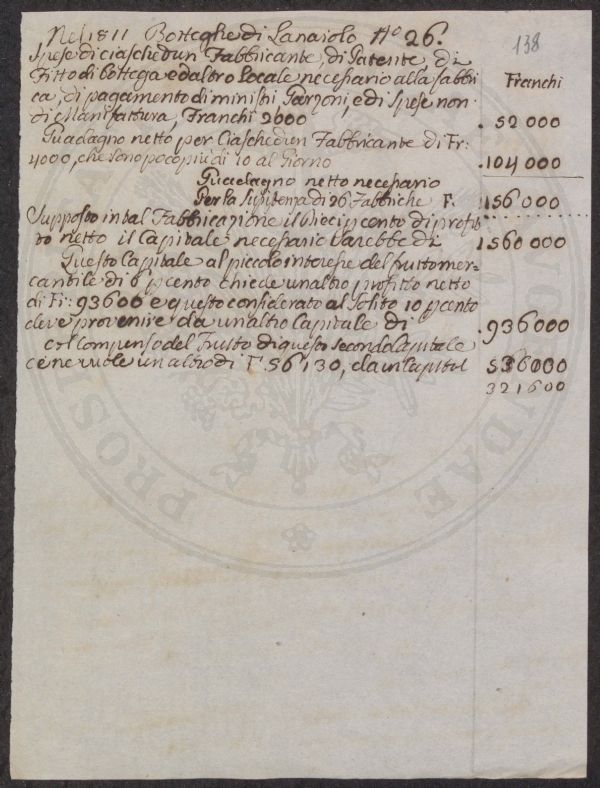 138
Nel 1811 Botteghe di Lanaiolo No 26.
Spese di ciaschedun Fabbricante, di Patente, di
Fitto di bottega ed altro locale necessario alla fabbri Franchi
ca, di pagamento di ministri Garzoni, e di spese non
di Manifattura, Franchi 2000 52 000
Guadagno netto per Ciaschedun Fabbricante di Fr:
4000, che sono poco piu di 10 al Giorno 104 000
Guadagno netto necessario
Per la sussistenza di 26 Fabbriche F: 156 000
Supposto in tal Fabbricazione il Dieci pcento di profit
to netto il Capitale necessario sarebbe di 1560 000
Questo Capitale al piccolo interesse del frutto mer=
cantile di 6 pcento chiede un altro profitto netto
di Fr: 93600 e questo considerato al solito 10 pcento
deve provenire da un altro Capitale di 936000
col compenso del frutto di questo secondo Capitale
ce ne vuole un altro di F. 56130, da un Capital 536000
321600
PROSPE